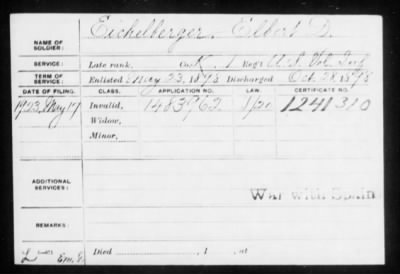 NAME OF SOLDIER: Eichelberger, Elbert D.
SERVICE: Late rank, Co. K, 1 Reg't U.S. Vol. Inf.
TERM OF SERVICE: Enlisted May 23, 1898 Discharged Oct. 28, 1898
DATE OF FILING. CLASS. APPLICATION NO. LAW. CERTIFICATE NO.
1923 May 17 Invalid, 1483962 1241310
Widow,
Minor,
ADDITIONAL SERVICES:
War with Spain
REMARKS:
Died , 1 , at